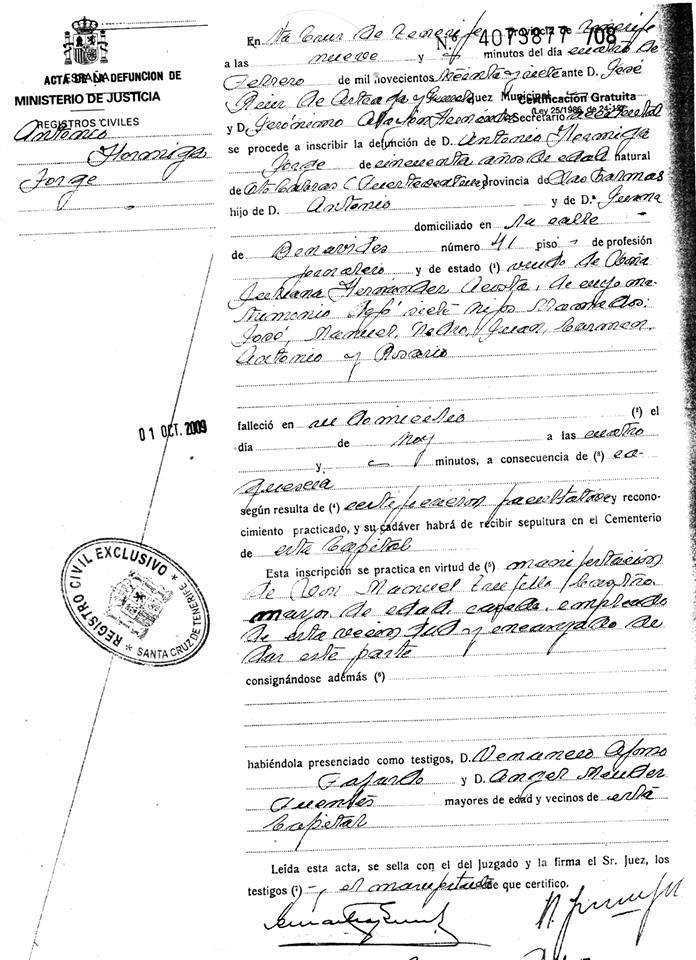 ESPAÑA
MINISTERIO DE JUSTICIA
REGISTROS CIVILES
ACTA DE LA DEFUNCION DE
Antonio
Hormiga
Jorge
01 OCT. 2009
REGISTRO CIVIL EXCLUSIVO * SANTA CRUZ DE TENERIFE *
N.º 4073877 /08
Certificación Gratuita
(Ley 25/1986, de 24-12)
En Sta Cruz de Tenerife provincia de Tenerife
a las nueve y minutos del día cuatro de
Febrero de mil novecientos treinta y siete ante D. José
de Arteaga y Juez Municipal
y D. Gerónimo Hernández Secretario
se procede a inscribir la defunción de D. Antonio Hormiga
Jorge de cincuenta años de edad natural
de Pto Cabras (Fuerteventura) provincia de Las Palmas
hijo de D. Antonio y de D.ª Juana
domiciliado en la calle
de Benavides número 41 piso - de profesión
jornalero y de estado (¹) viudo de Doña
Juliana Hernández Acosta, de cuyo ma-
trimonio dejó siete hijos llamados:
José, Manuel, Pedro, Juan, Carmen,
Antonio y Rosario
falleció en su domicilio (²) el
día de hoy a las cuatro
y minutos, a consecuencia de (³) ca-
quexia
según resulta de (⁴) certificación facultativa y recono-
cimiento practicado, y su cadáver habrá de recibir sepultura en el Cementerio
de esta Capital
Esta inscripción se practica en virtud de (⁵) manifestación
de Don Manuel Trujillo
mayor de edad, casado, empleado
de esta vecindad y encargado de
dar este parte
consignándose además (⁶)
habiéndola presenciado como testigos, D. Venancio Afonso
Fajardo y D. Angel Méndez
Fuentes mayores de edad y vecinos de esta
Capital
Leída esta acta, se sella con el del Juzgado y la firma el Sr. Juez, los
testigos (⁷) y el manifestante de que certifico.